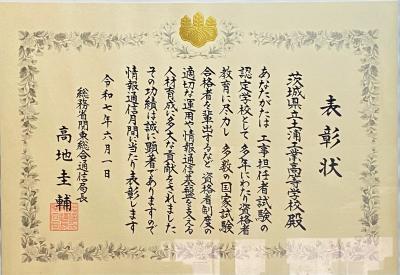 表彰状
茨城県立土浦工業高等学校殿
あなたがたは 工事担任者試験の
認定学校として 多年にわたり資格者
教育に尽力し 多数の国家試験
合格者を輩出するなど資格者制度の
適切な運用や情報通信基盤を支える
人材育成に多大な貢献をされました
その功績は誠に顕著でありますので
情報通信月間に当たり表彰します
令和七年六月一日
総務省関東総合通信局長
高地圭輔